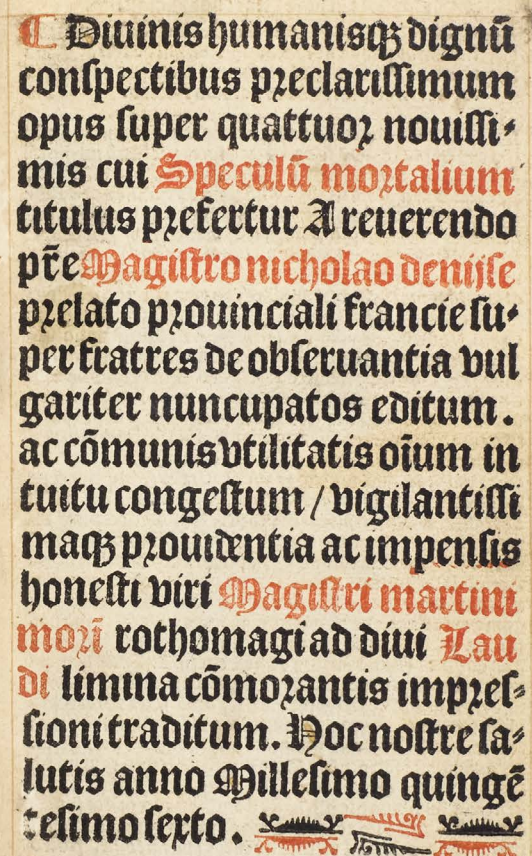 ¶ Diuinis humanisqꝫ dignū
conſpectibus preclariſſimum
opus ſuper quattuor nouiſſi⸗
mis cui Speculū mortalium
titulus prefertur A reuerendo
pr̄e Magiſtro nicholao denijſe
prelato prouinciali francie ſu⸗
per fratres de obſeruantia vul
gariter nuncupatos editum.
ac cōmunis vtilitatis oīum in
tuitu congeſtum / vigilantiſſi
maqꝫ prouidentia ac impenſis
honeſti viri Magiſtri martini
mori̅ rothomagi ad diui Lau
di limina cōmorantis impreſ⸗
ſioni traditum. Hoc noſtre ſa⸗
lutis anno Milleſimo quingē
teſimo ſexto.